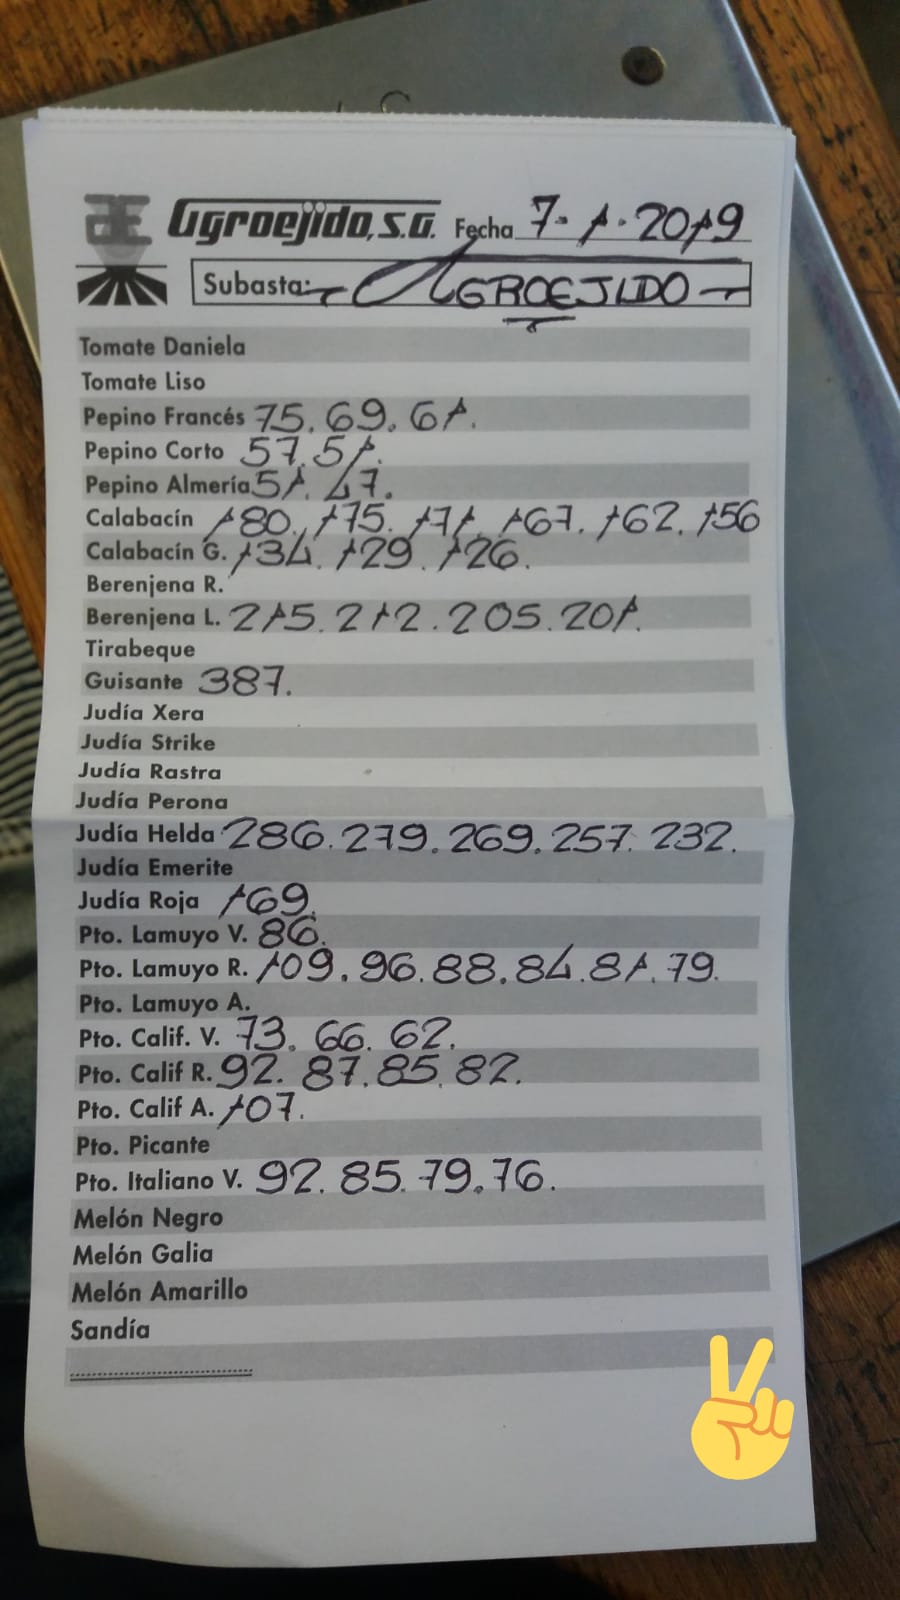 Agroejido, S.A. Fecha 7-1-2019
Subasta: AGROEJIDO
Tomate Daniela
Tomate Liso
Pepino Francés 75. 69. 61.
Pepino Corto 57. 51.
Pepino Almería 51. 47.
Calabacín 180. 175. 171. 167. 162. 156
Calabacín G. 134. 129. 126.
Berenjena R.
Berenjena L. 215. 212. 205. 201.
Tirabeque
Guisante 387.
Judía Xera
Judía Strike
Judía Rastra
Judía Perona
Judía Helda 286. 279. 269. 257. 232.
Judía Emerite
Judía Roja 169.
Pto. Lamuyo V. 86.
Pto. Lamuyo R. 109. 96. 88. 84. 81. 79.
Pto. Lamuyo A.
Pto. Calif. V. 73. 66. 62.
Pto. Calif R. 92. 87. 85. 82.
Pto. Calif A. 107.
Pto. Picante
Pto. Italiano V. 92. 85. 79. 76.
Melón Negro
Melón Galia
Melón Amarillo
Sandía